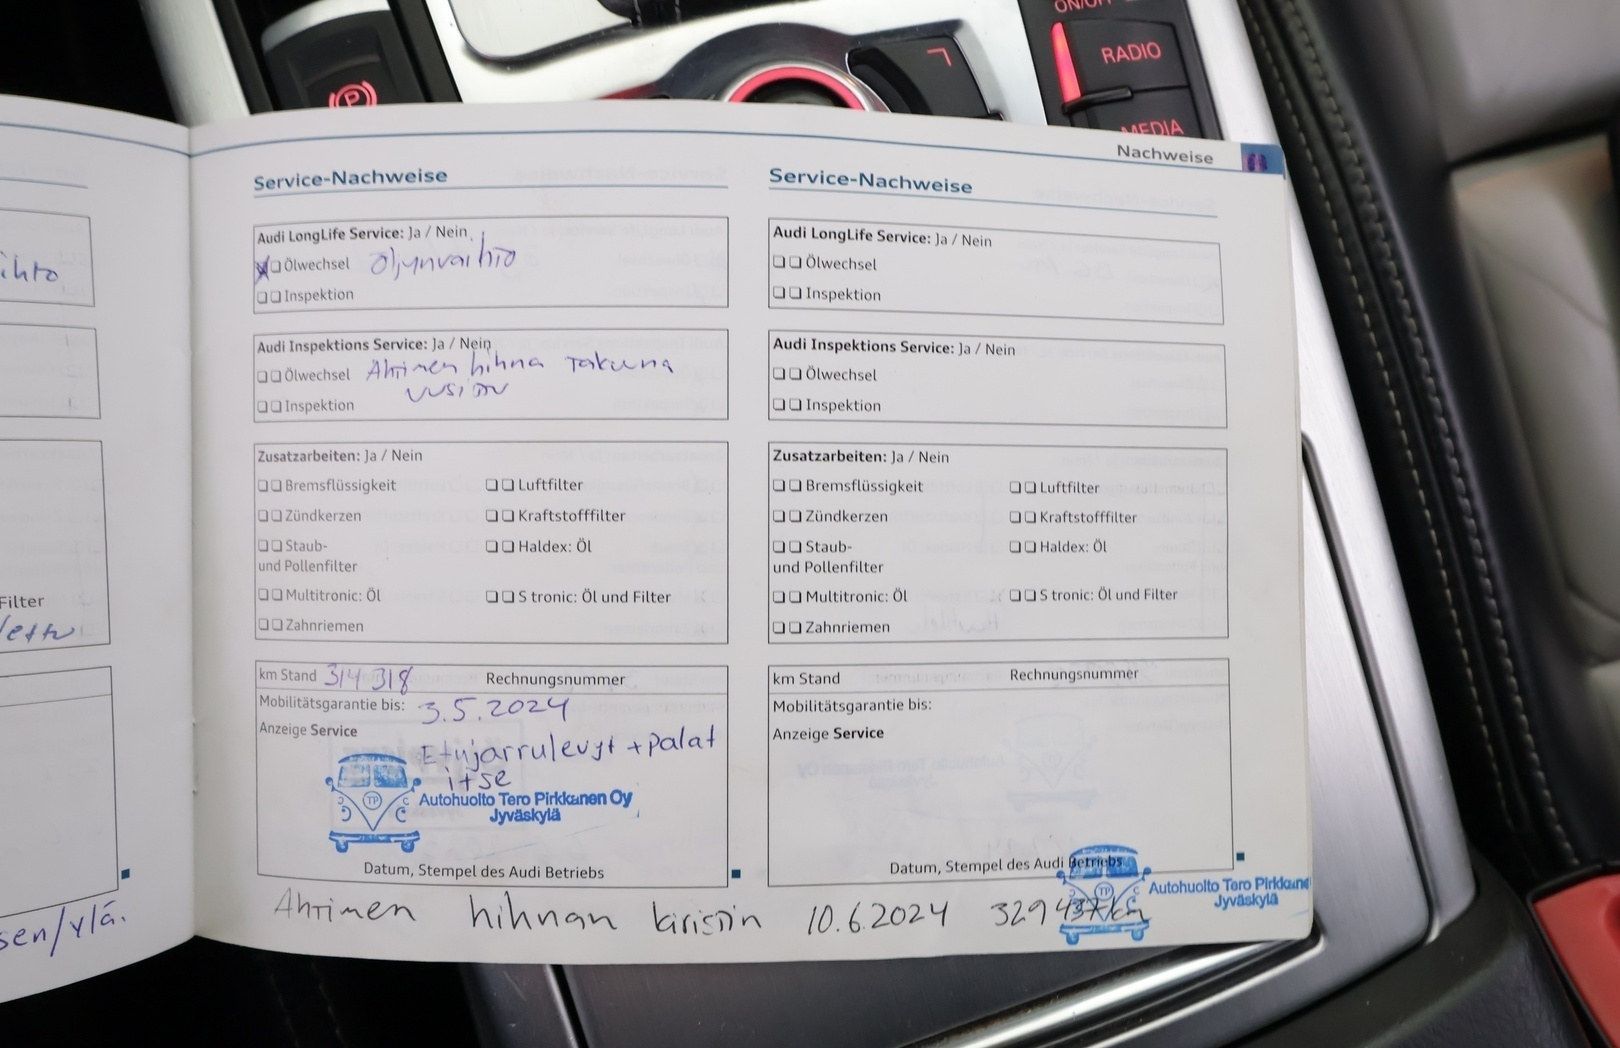 ON/OFF
RADIO
MEDIA
Nachweise
ihto
Filter
sen/ylä.
Service-Nachweise
Audi LongLife Service: Ja / Nein
Ölwechsel Öljynvaihto
Inspektion
Audi Inspektions Service: Ja / Nein
Ölwechsel Ahtimen hihna Takuuna
uusittu
Inspektion
Zusatzarbeiten: Ja / Nein
Bremsflüssigkeit Luftfilter
Zündkerzen Kraftstofffilter
Staub- Haldex: Öl
und Pollenfilter
Multitronic: Öl S tronic: Öl und Filter
Zahnriemen
km Stand 314 318 Rechnungsnummer
Mobilitätsgarantie bis: 3.5.2024
Anzeige Service
Etujarrulevyt + palat
itse
TP
Autohuolto Tero Pirkkanen Oy
Jyväskylä
Datum, Stempel des Audi Betriebs
Service-Nachweise
Audi LongLife Service: Ja / Nein
Ölwechsel
Inspektion
Audi Inspektions Service: Ja / Nein
Ölwechsel
Inspektion
Zusatzarbeiten: Ja / Nein
Bremsflüssigkeit Luftfilter
Zündkerzen Kraftstofffilter
Staub- Haldex: Öl
und Pollenfilter
Multitronic: Öl S tronic: Öl und Filter
Zahnriemen
km Stand Rechnungsnummer
Mobilitätsgarantie bis:
Anzeige Service
Datum, Stempel des Audi Betriebs
TP
Autohuolto Tero Pirkkane
Jyväskylä
Ahtimen hihnan kiristin 10.6.2024 329 437 km